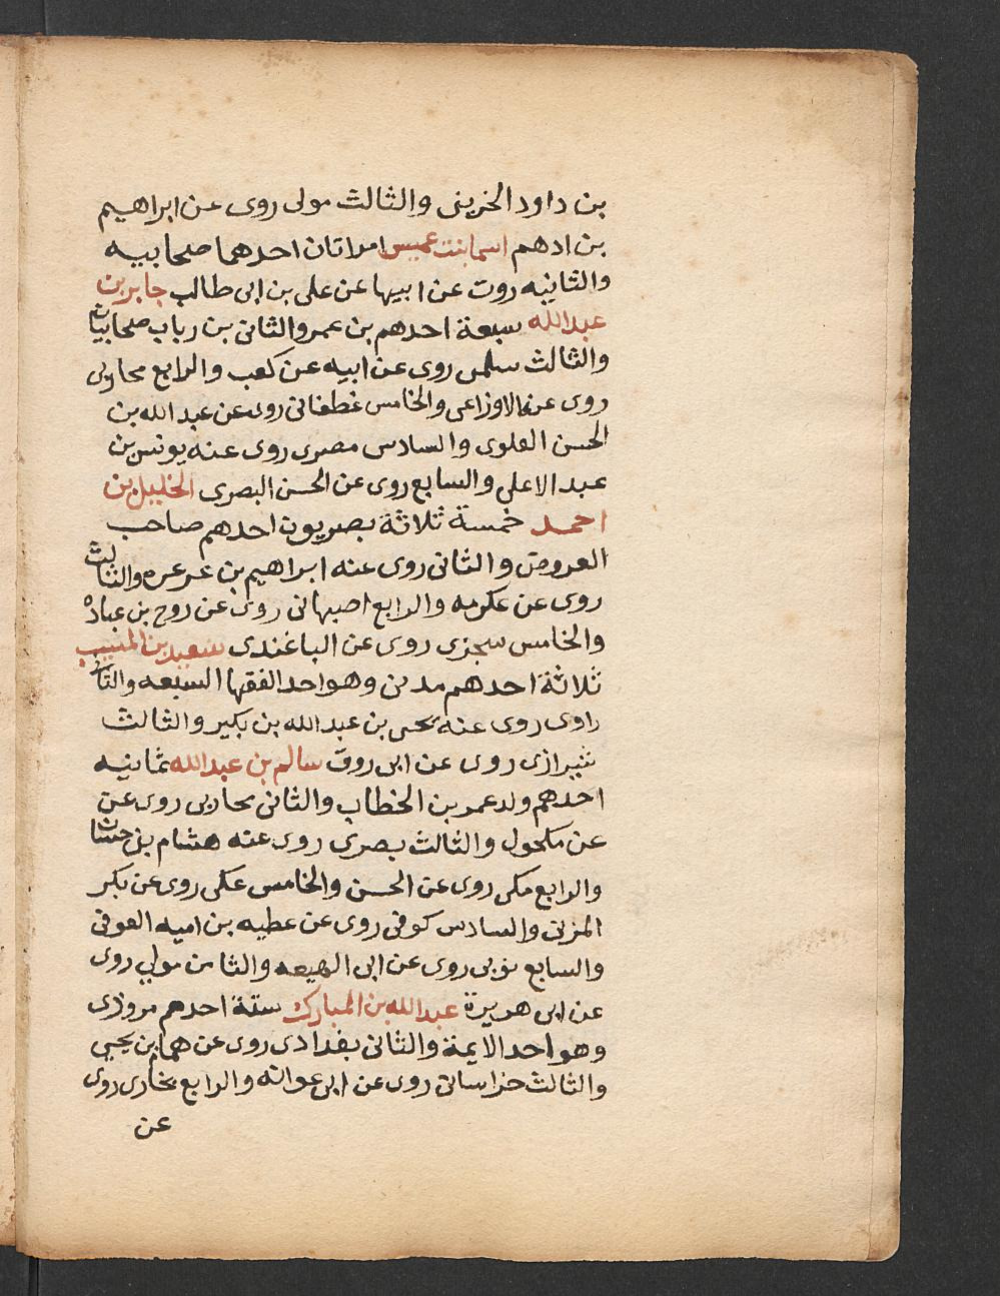 بن داود الخريبى والثالث مولى روى عن ابراهيم
بن ادهم اسما بنت عميس امراتان احدهما صحابيه
والثانيه روت عن ابيها عن على بن ابى طالب جابر بن
عبد الله سبعة احدهم بن عمرو والثانى بن رياب صحابيان
والثالث سلمى روى عن ابيه عن كعب والرابع محاربى
روى عن الاوزاعى والخامس غطفانى روى عن عبد الله بن
الحسن العلوى والسادس مصرى روى عنه يونس بن
عبد الاعلى والسابع روى عن الحسن البصرى الخليل بن
احمد خمسة ثلاثة بصريون احدهم صاحب
العروض والثانى روى عنه ابراهيم بن عرعره والثالث
روى عن عكرمه والرابع اصبهانى روى عن روح بن عباده
والخامس سجزى روى عن الباغندى سعيد بن المسيب
ثلاثة احدهم مدنى وهو احد الفقها السبعه والثانى
راوى روى عنه يحيى بن عبد الله بن بكير والثالث
شيرازى روى عن ابى روق سالم بن عبد الله ثمانيه
احدهم ولد عمر بن الخطاب والثانى محاربى روى عن
عن مكحول والثالث بصرى روى عنه هشام بن حسان
والرابع مكى روى عن الحسن والخامس عكى روى عن بكر
المزنى والسادس كوفى روى عن عطيه بن اميه العوفى
والسابع روى عن ابى الهيعه والثامن مولى روى
عن ابى هريرة عبد الله بن المبارك ستة احدهم مروزى
وهو احد الايمة والثانى بغدادى روى عن همام بن يحيى
والثالث خراسانى روى عن ابى عوانه والرابع بخارى روى
عن